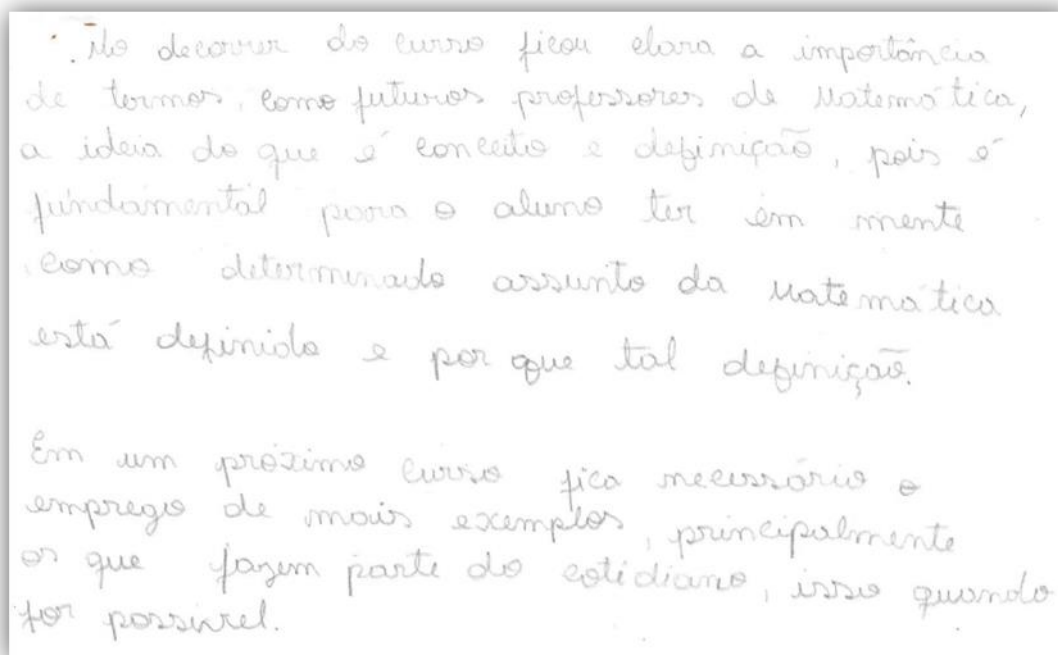 No decorrer do curso ficou clara a importância
de termos, como futuros professores de Matemática,
a ideia do que é conceito e definição, pois é
fundamental para o aluno ter em mente
como determinado assunto da Matemática
está definido e por que tal definição.
Em um próximo curso fica necessário o
emprego de mais exemplos, principalmente
os que fazem parte do cotidiano, isso quando
for possível.